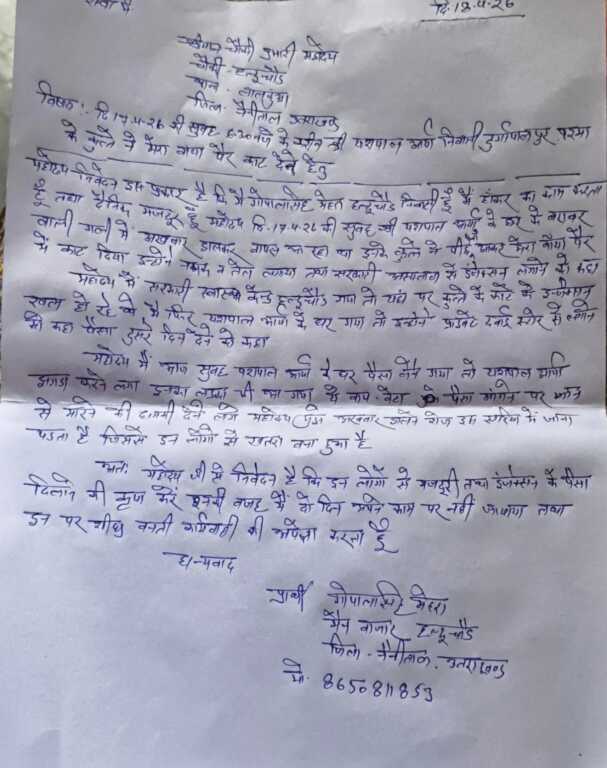 सेवा में दि. 18.4.26
चौकी प्रभारी महोदय
चौकी - हल्दूचौड़
थाना - लालकुआं
जिला - नैनीताल उत्तराखण्ड
विषय:- दि. 17.4.26 की सुबह 6:30 बजे के करीब श्री यशपाल आर्य निवासी दुर्गापालपुर परमा
के कुत्ते ने मेरा बायां पैर काट देने हेतु
महोदय निवेदन इस प्रकार है कि मैं गोपाल सिंह मेहरा हल्दूचौड़ निवासी हूँ मैं हॉकर का काम करता
हूँ तथा दैनिक मजदूर हूँ महोदय दि. 17.4.26 की सुबह श्री यशपाल आर्य के घर के बराबर
वाली गली में अखबार डालकर वापस आ रहा था इनके कुत्ते ने पीछे से आकर मेरा बायां पैर
में काट दिया इन्होंने न तेल लगाया तथा सरकारी अस्पताल में इंजेक्शन लगाने को कहा
महोदय मैं सरकारी स्वास्थ्य केन्द्र हल्दूचौड़ गया तो वहां पर कुत्ते के काटे के इन्जेक्शन
खत्म हो रहे थे मैं फिर यशपाल आर्य के घर गया तो इन्होंने प्राइवेट दवाई स्टोर से लगाने
को कहा पैसा दूसरे दिन देने को कहा
महोदय मैं आज सुबह यशपाल आर्य के घर पैसा लेने गया तो यशपाल आर्य
झगड़ा करने लगा इनका लड़का भी आ गया के बाप बेटा पैसा मांगने पर जान
से मारने की धमकी देने लगे महोदय मुझे अखबार डालने रोज उस एरिया में जाना
पड़ता है जिससे इन लोगों से खतरा बना हुआ है
अतः महोदय जी से निवेदन है कि इन लोगों से मजदूरी तथा इंजेक्शन के पैसा
दिलाने की कृपा करें इनकी वजह से मैं दो दिन अपने काम पर नहीं जा पाया तथा
इन पर शीघ्र कार्यवाही की अपेक्षा करता हूँ
धन्यवाद
प्रार्थी गोपाल सिंह मेहरा
मेन बाजार हल्दूचौड़
जिला - नैनीताल - उत्तराखण्ड
मो. 8650811853